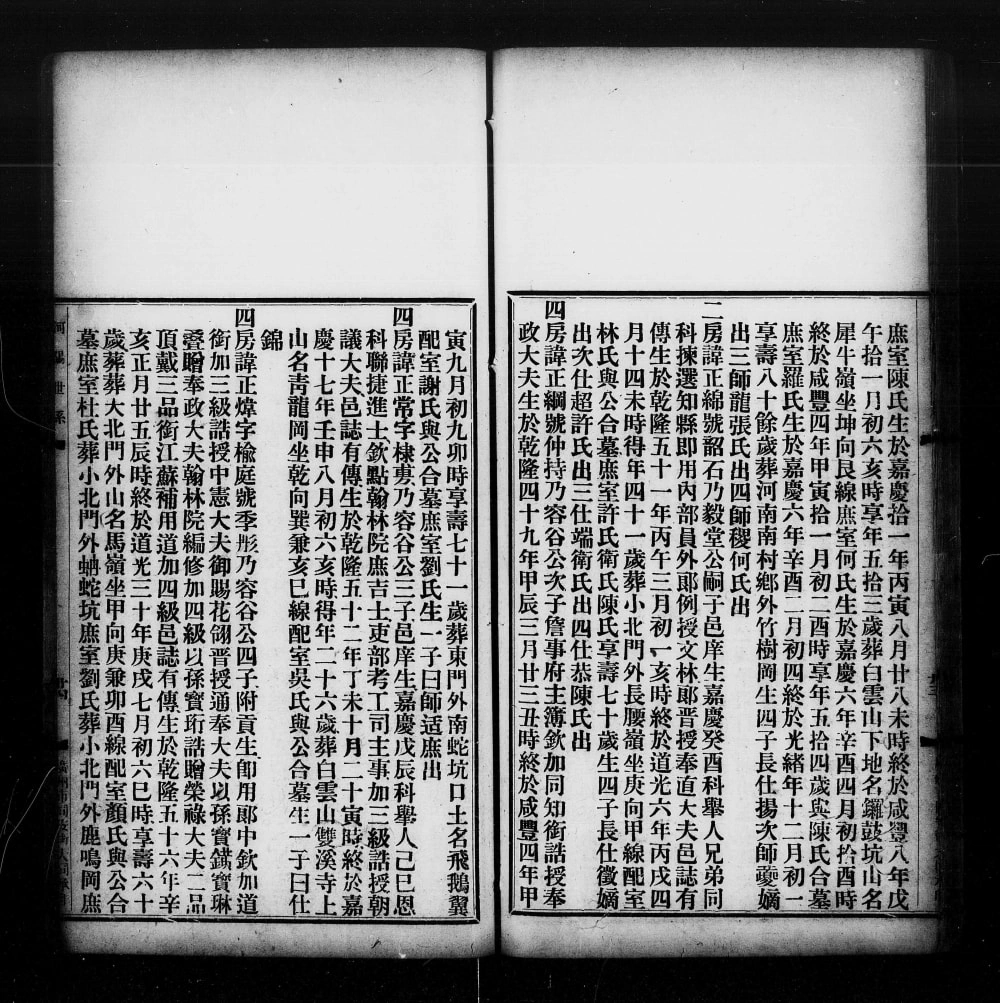 庶室陳氏生於嘉慶拾一年丙寅八月廿八未時終於咸豐八年戊
午拾一月初六亥時享年五拾三歲葬白雲山下地名鑼鼓坑山名
犀牛嶺坐坤向艮線庶室何氏生於嘉慶六年辛酉四月初拾酉時
終於咸豐四年甲寅拾一月初二酉時享年五拾四歲與陳氏合墓
庶室羅氏生於嘉慶六年辛酉二月初四終於光緒年十二月初一
享壽八十餘歲葬河南南村鄉外竹樹岡生四子長仕揚次師夔嫡
出三師龍張氏出四師稷何氏出
二房諱正綿號韶石乃毅堂公嗣子邑庠生嘉慶癸酉科舉人兄弟同
科揀選知縣即用內部員外郎例授文林郎晋授奉直大夫邑誌有
傳生於乾隆五十一年丙午三月初一亥時終於道光六年丙戌四
月十四未時得年四十一歲葬小北門外長腰嶺坐庚向甲線配室
林氏與公合墓庶室許氏衛氏陳氏享壽七十歲生四子長仕徵嫡
出次仕超許氏出三仕端衛氏出四仕恭陳氏出
四房諱正綱號仲持乃容谷公次子詹事府主簿欽加同知銜誥授奉
政大夫生於乾隆四十九年甲辰三月廿三丑時終於咸豐四年甲
寅九月初九卯時享壽七十一歲葬東門外南蛇坑口土名飛鵝翼
配室謝氏與公合墓庶室劉氏生一子曰師适庶出
四房諱正常字棣旉乃容谷公三子邑庠生嘉慶戊辰科舉人己巳恩
科聯捷進士欽點翰林院庶吉士吏部考工司主事加三級誥授朝
議大夫邑誌有傳生於乾隆五十二年丁未十月二十寅時終於嘉
慶十七年壬申八月初六亥時得年二十六歲葬白雲山雙溪寺上
山名青龍岡坐乾向巽兼亥巳線配室吳氏與公合墓生一子曰仕
錦
四房諱正煒字榆庭號季彤乃容谷公四子附貢生即用郎中欽加道
銜加三級誥授中憲大夫御賜花翎晋授通奉大夫以孫寶鏋寶琳
疊贈奉政大夫翰林院編修加四級以孫寶珩誥贈榮祿大夫二品
頂戴三品銜江蘇補用道加四級邑誌有傳生於乾隆五十六年辛
亥正月廿五辰時終於道光三十年庚戌七月初六巳時享壽六十
歲葬葬大北門外山名馬嶺坐甲向庚兼卯酉線配室顏氏與公合
墓庶室杜氏葬小北門外蚺蛇坑庶室劉氏葬小北門外鹿鳴岡庶